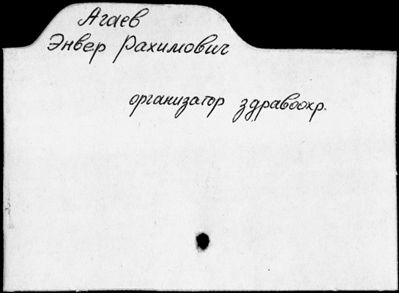 Агаев
Энвер Рахимович
организатор здравоохр.